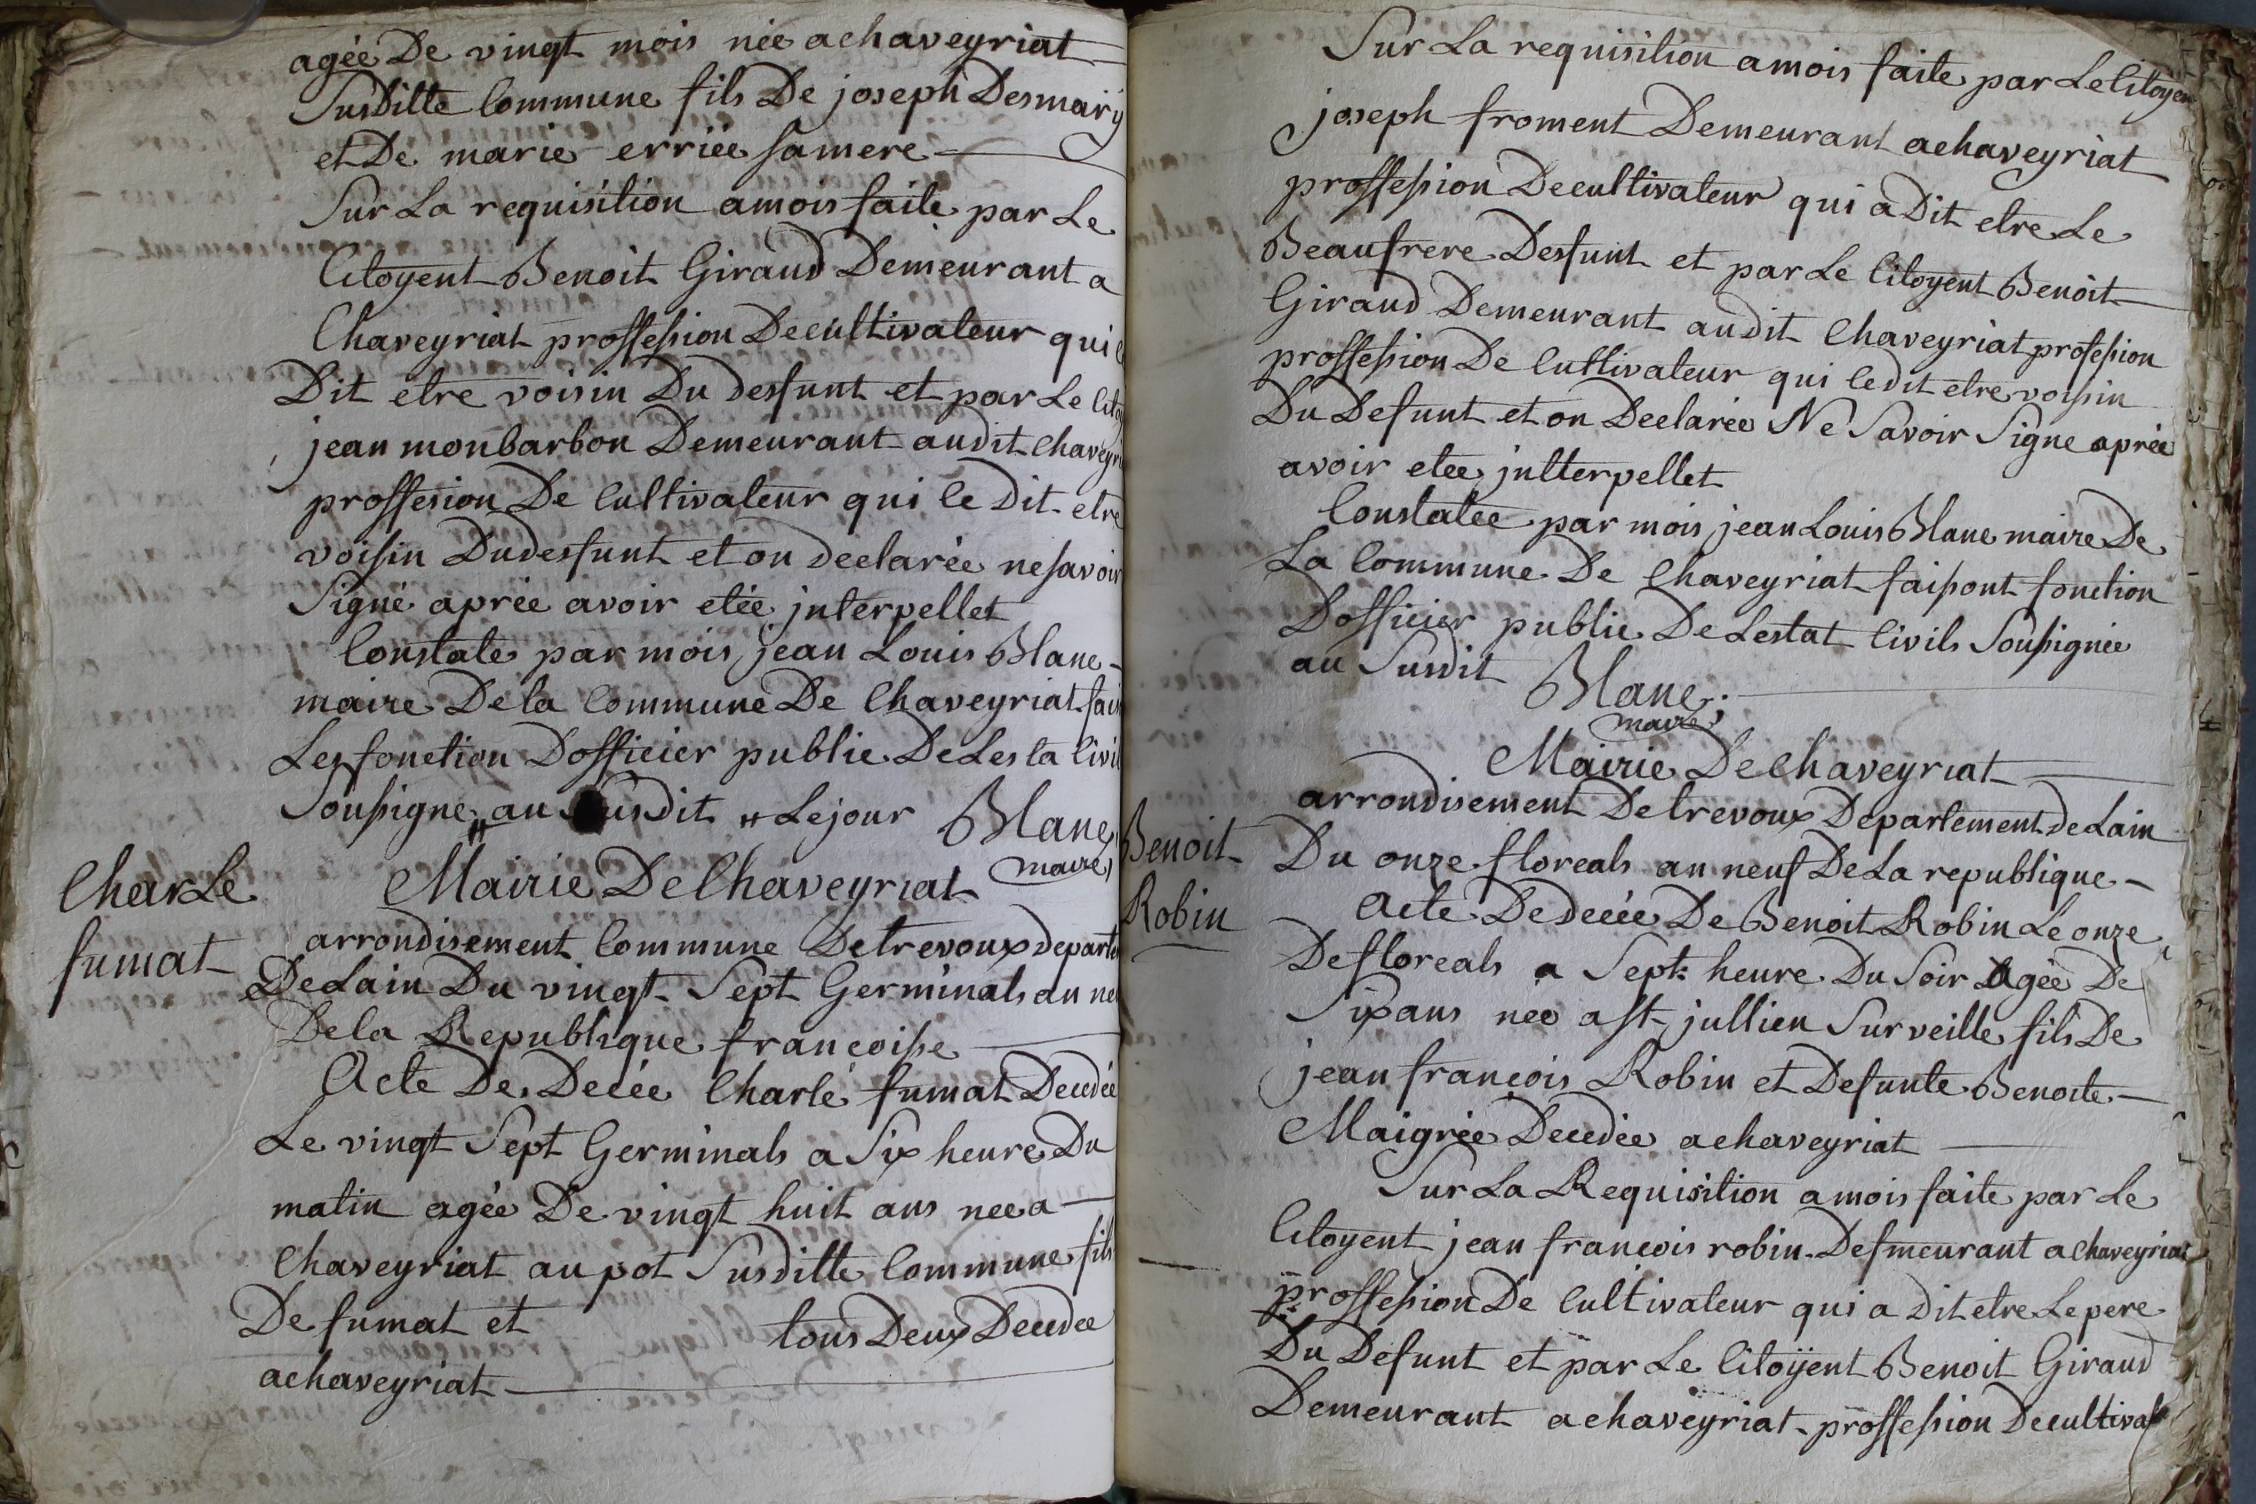 agée De vingt mois née achaveyriat
Susditte Commune fils De joseph Desmarÿ
et De marie erriée sa mere
Sur La requisition a mois faite par Le
Citoyent Benoit Giraud Demeurant a
Chaveyriat proffession De cultivateur qui
Dit etre voisin Du desfunt et par Le
jean monbarbon Demeurant audit
proffesion De Cultivateur qui ce Dit etre
voisin Du desfunt et on declarée ne savoir
Signé aprée avoir etée jnterpellet
Constate par mois jean Louis Blanc
maire De la Commune De Chaveyriat
Les fonction Dofficier public De Lesta
Soussigne au Susdit " Le jour Blanc
maire
Charle
fumat
Mairie De Chaveyriat
arrondisement Commune De trevoux
De Lain Du vingt Sept Germinals an
De la Republique françoisse
Acte De Decée Charle fumat Decedée
Le vingt Sept Germinals a Six heure Du
matin agée De vingt huit ans nee a
Chaveyriat au pot Susditte Commune fils
De fumat et tous Deux Decedee
achaveyriat
Sur La requisition a mois faite par Le Citoyen
joseph froment Demeurant achaveyriat
proffession De cultivateur qui a Dit etre Le
Beaufrere Desfunt et par Le Citoyent Benoit
Giraud Demeurant audit Chaveyriat profession
proffession De Cultivateur qui ce dit etre voisin
Du Defunt et on Declarée Ne Savoir Signe aprée
avoir etee jntterpellet
Constatée par mois jean Louis Blanc maire De
La Commune De Chaveyriat faissont fonction
Dofficier public De Lestat Civils Soussignée
au Susdit Blanc
maire
Mairie De Chaveyriat
arrondisement De trevoux Departement de Lain
Du onze floreals an neuf De La republique
Benoit
Robin
Acte De decée De Benoit Robin Le onze
De floreals a Sept heure Du Soir Agée De
Six ans nee a St jullien Sur veille fils De
jean françois Robin et Defunte Benoite
Maigrée Decedée achaveyriat
Sur La Requisition a mois faite par Le
Citoyent jean françois robin Desmeurant a Chaveyriat
proffession De Cultivateur qui a dit etre Le pere
Du Défunt et par Le Citoÿent Benoit Giraud
Demeurant achaveyriat proffession De